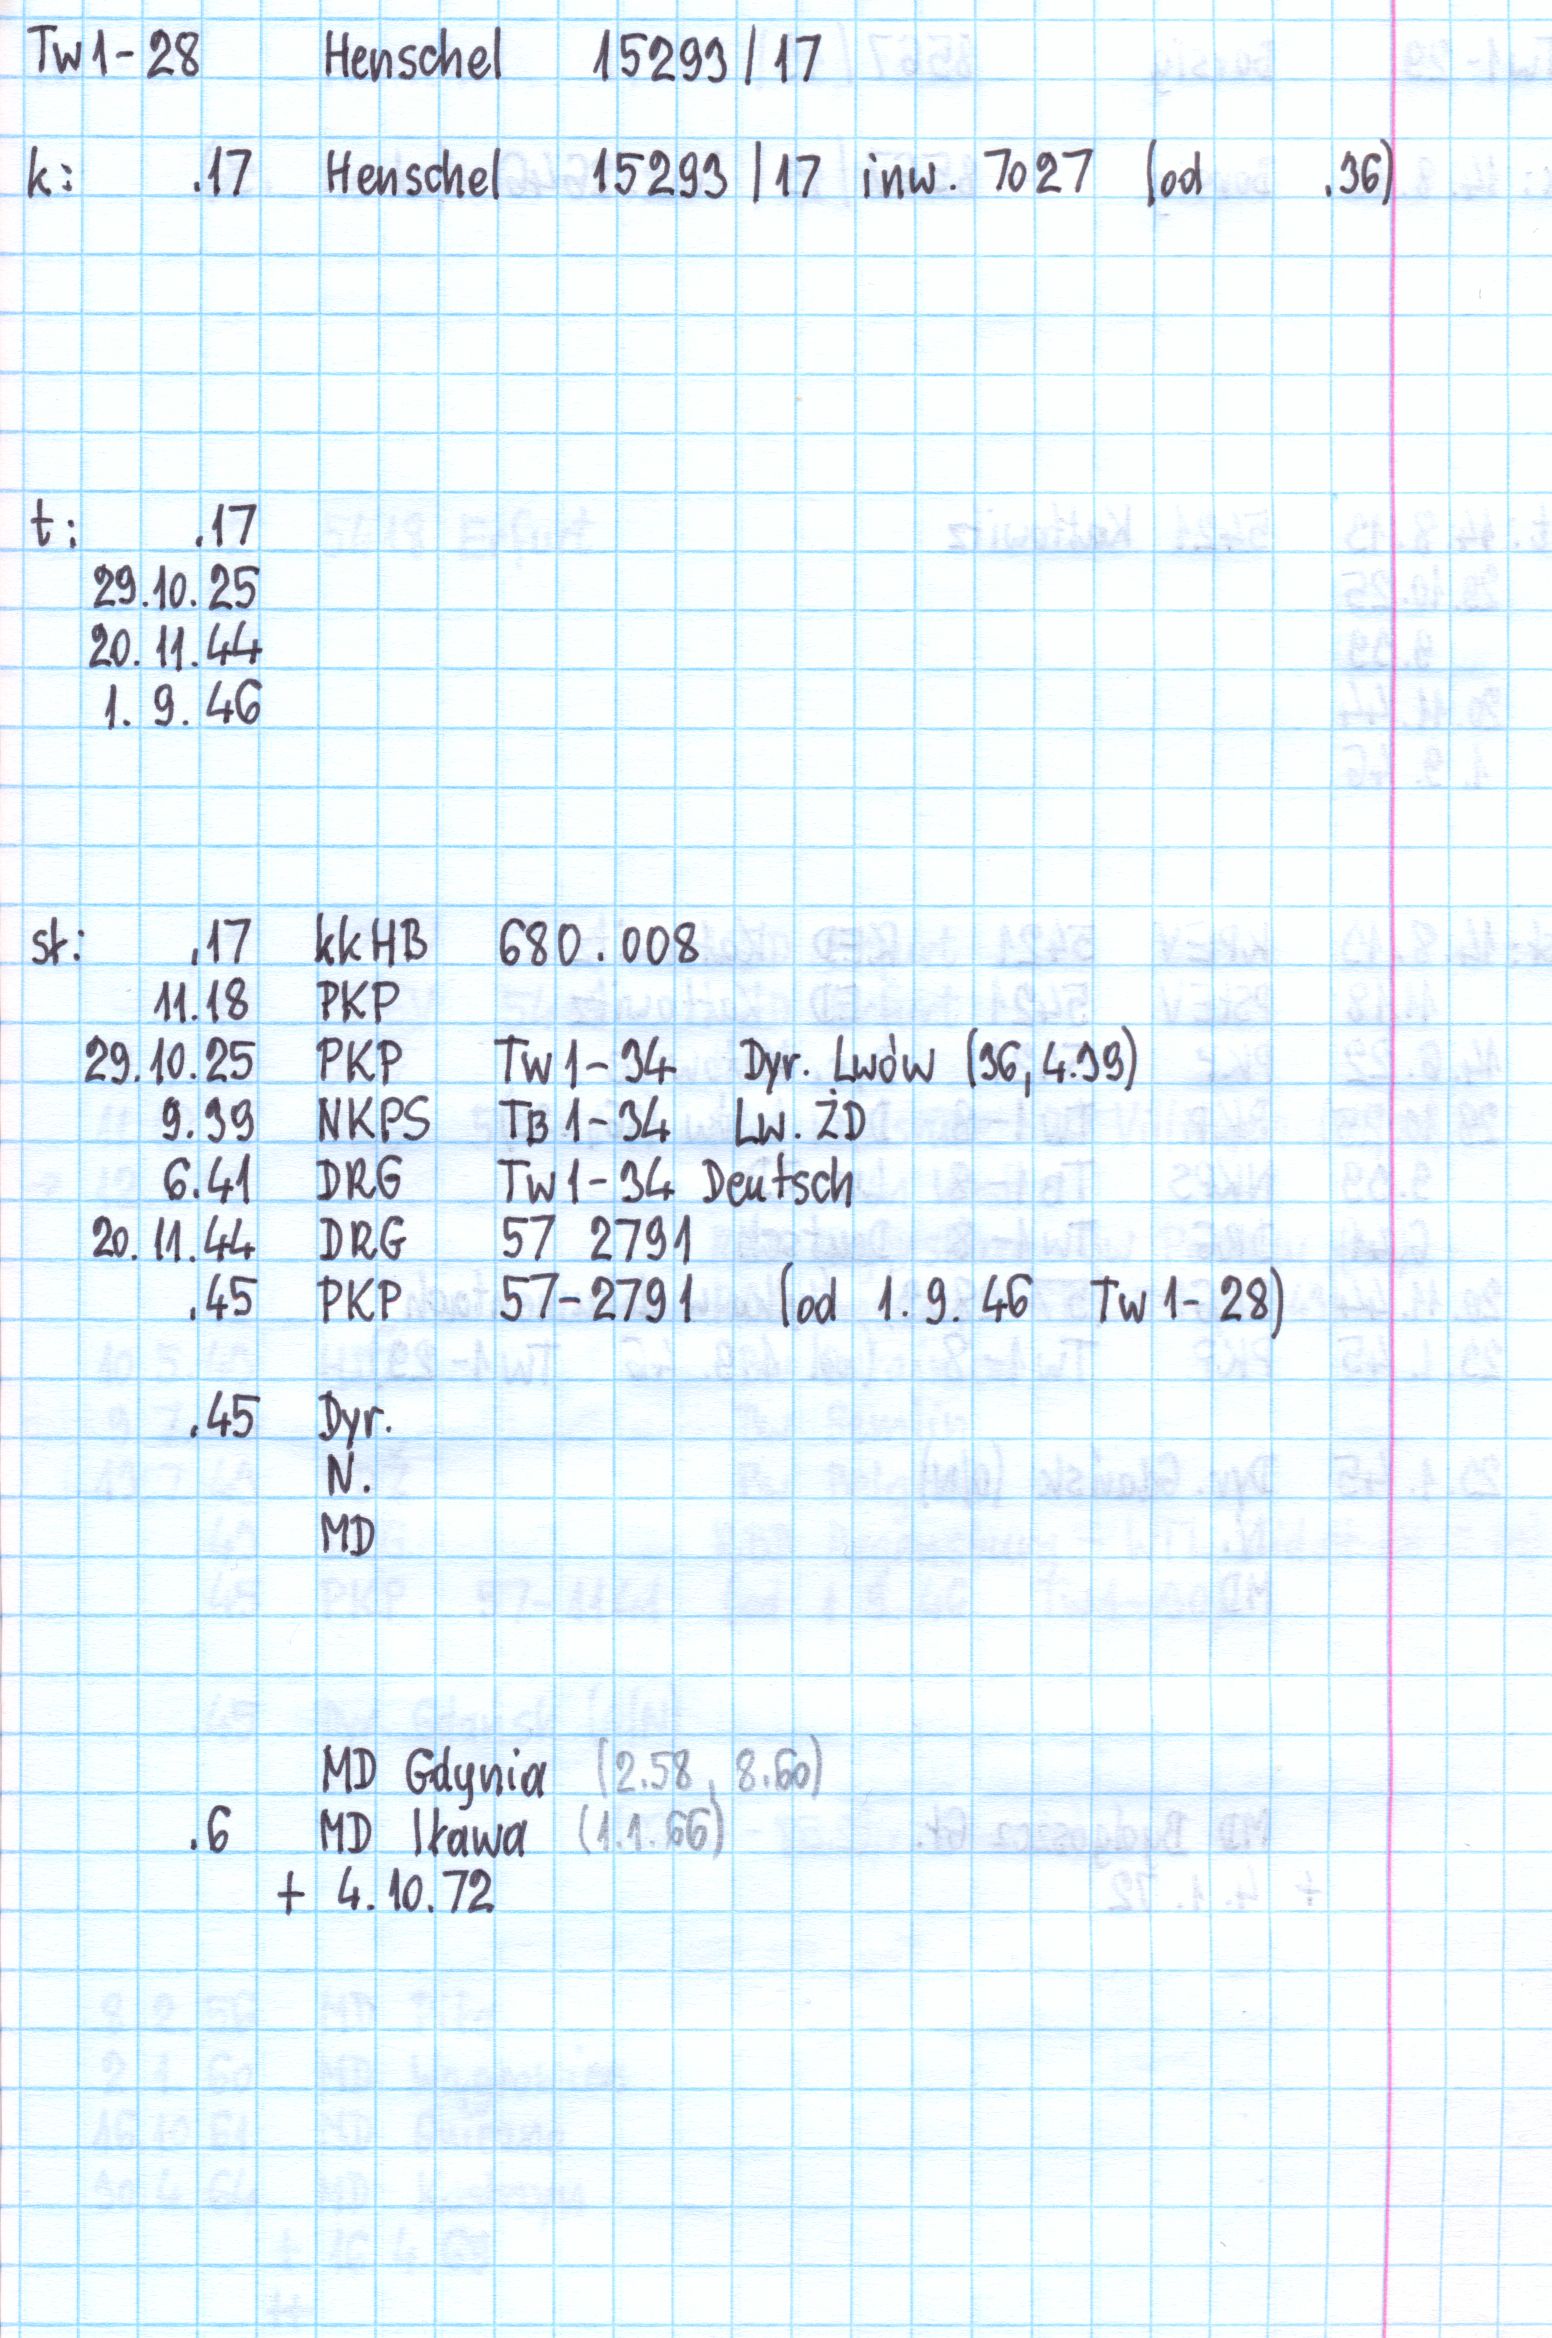 Tw1-28 Henschel 15293/17
k: .17 Henschel 15293/17 inw. 7027 (od .36)
t: .17
29.10.25
20.11.44
1.9.46
st: .17 kkHB 680.008
11.18 PKP
29.10.25 PKP Tw1-34 Dyr. Lwów (36, 4.39)
9.39 NKPS TB1-34 Lw. ŻD
6.41 DRG Tw1-34 Deutsch
20.11.44 DRG 57 2791
.45 PKP 57-2791 (od 1.9.46 Tw1-28)
.45 Dyr.
N.
MD
MD Gdynia (2.58, 8.60)
.6 MD Iława (1.1.66)
+ 4.10.72